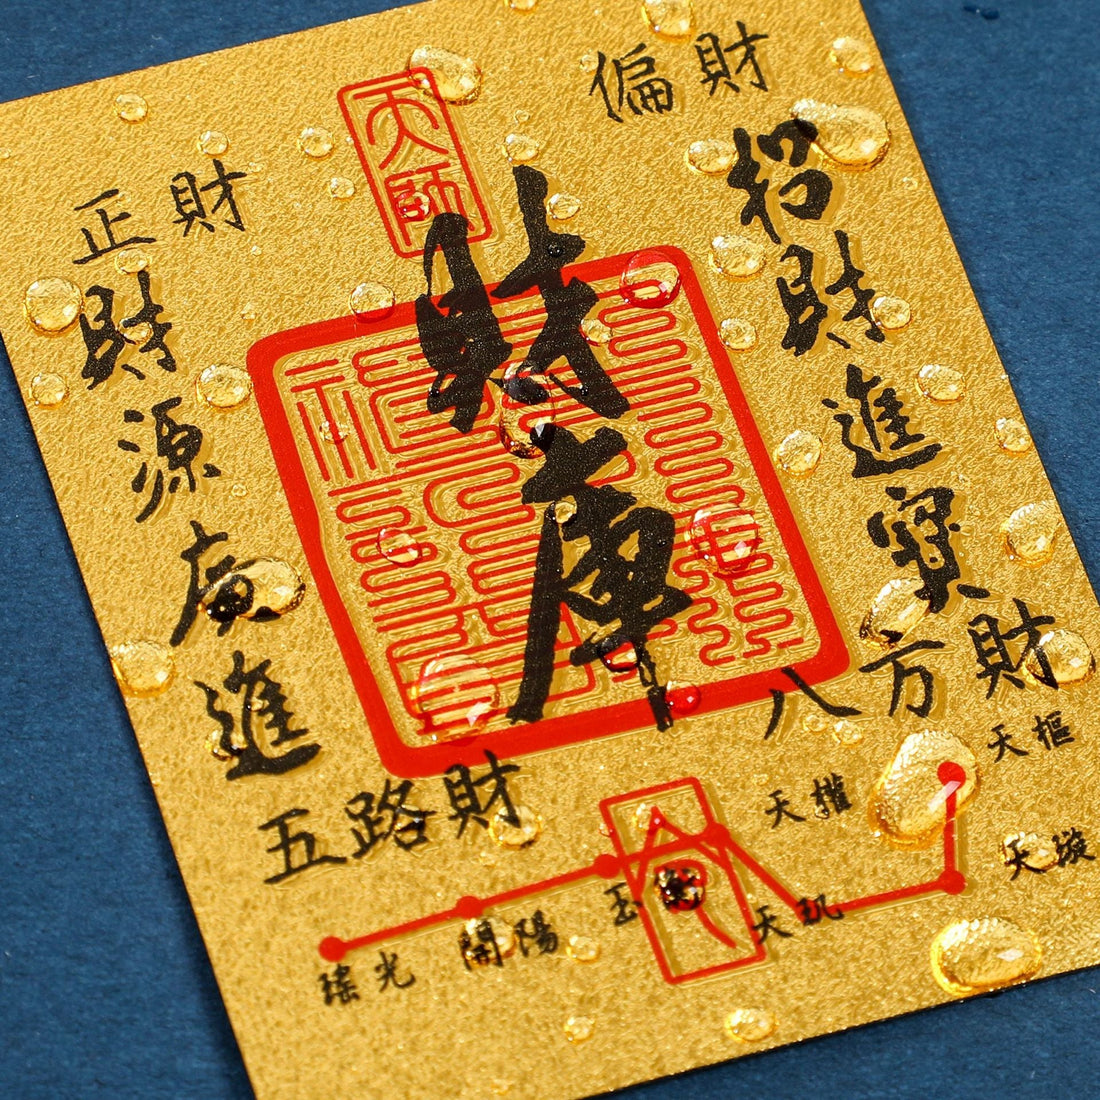 偏財
正財
天師
財庫
招財進寶
財源廣進
八方財
五路財
天樞
天權
天璇
天璣
玉衡
開陽
瑤光